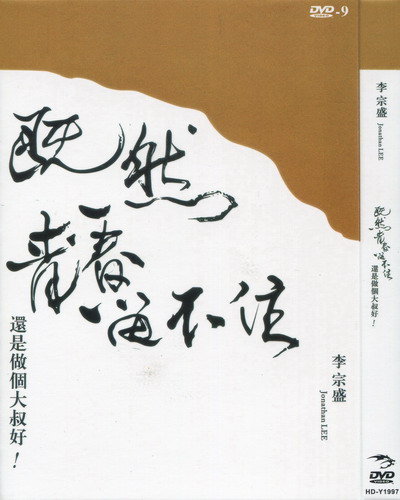 DVD-9
VIDEO
既然
青春留不住
還是做個大叔好！
李宗盛
Jonathan LEE
李宗盛
Jonathan LEE
既然
青春留不住
還是做個大叔好！
DVD
VIDEO
HD-Y1997